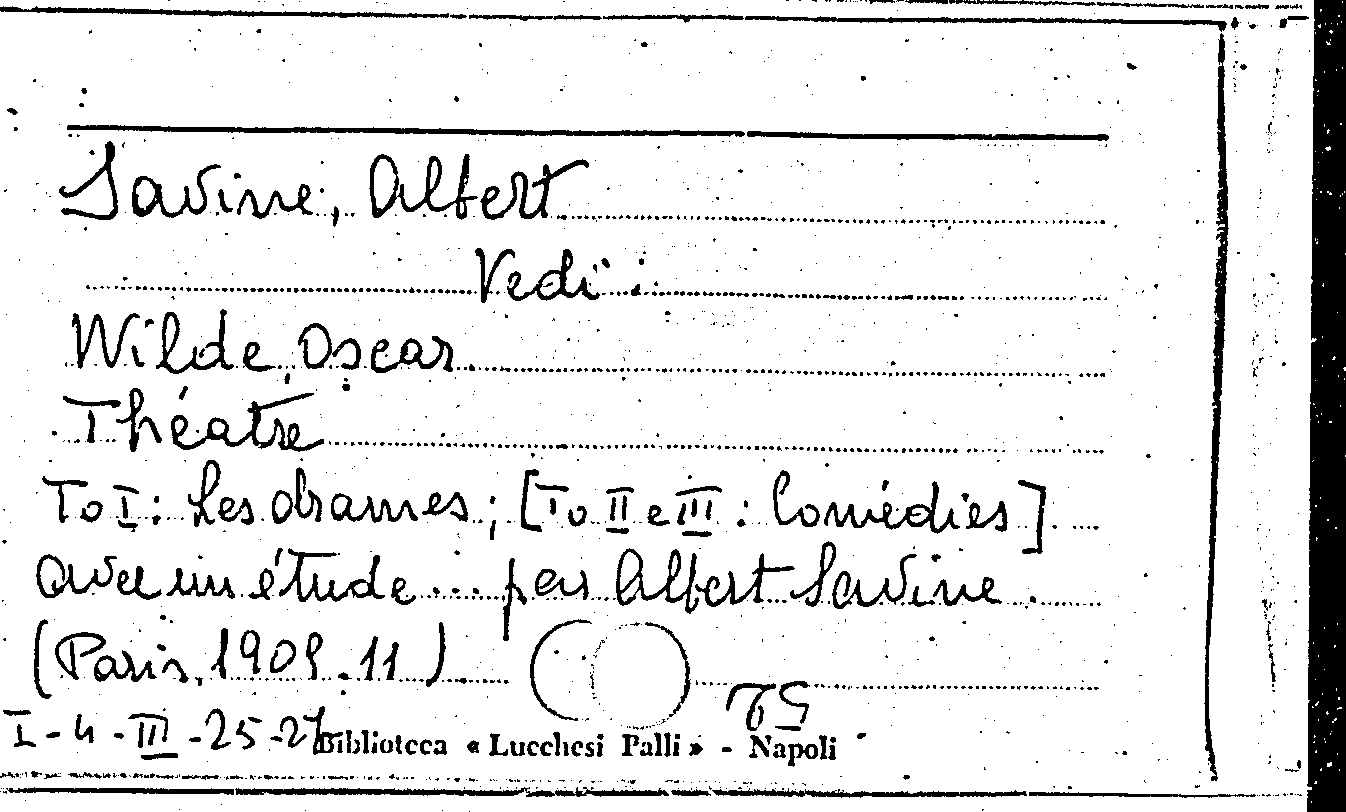 Savine, Albert
Vedi:
Wilde, Oscar.
Théatre
To I: Les drames; [To II e III: Comédies]
avec un étude... par Albert Savine.
(Paris, 1909-11)
I-4-III-25-27
Biblioteca « Lucchesi Palli » - Napoli